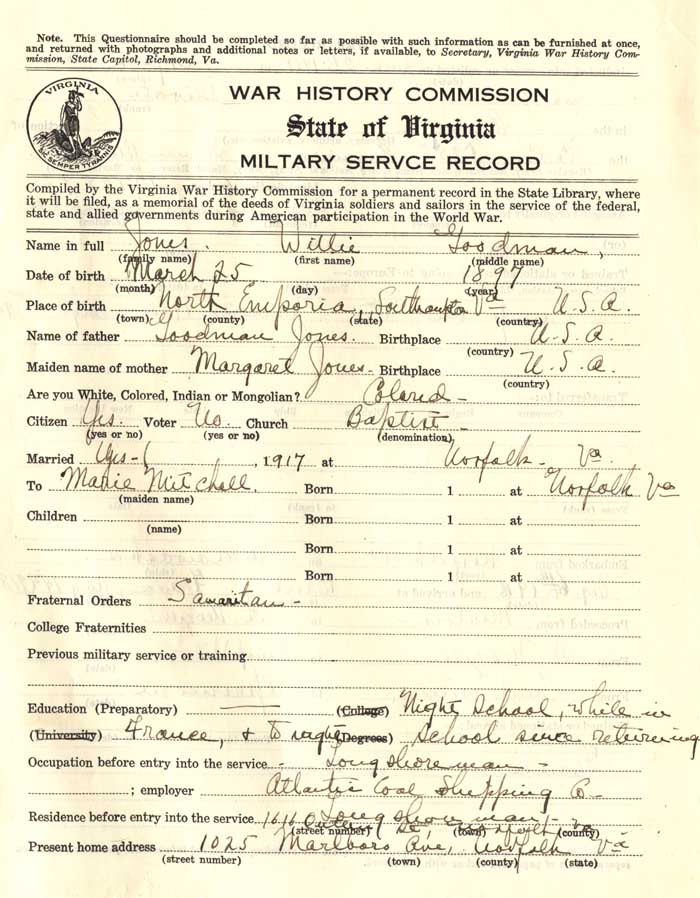 Note. This Questionnaire should be completed so far as possible with such information as can be furnished at once,
and returned with photographs and additional notes or letters, if available, to Secretary, Virginia War History Com-
mission, State Capitol, Richmond, Va.
VIRGINIA
SIC SEMPER TYRANNIS
WAR HISTORY COMMISSION
State of Virginia
MILTARY SERVCE RECORD
Compiled by the Virginia War History Commission for a permanent record in the State Library, where
it will be filed, as a memorial of the deeds of Virginia soldiers and sailors in the service of the federal,
state and allied governments during American participation in the World War.
Name in full Jones. Willie Goodman,
(family name) (first name) (middle name)
Date of birth March 25 1897
(month) (day) (year)
Place of birth North Emporia, Southampton Va U.S.A.
(town) (county) (state) (country)
Name of father Goodman Jones. Birthplace U.S.A.
(country)
Maiden name of mother Margaret Jones - Birthplace U.S.A.
(country)
Are you White, Colored, Indian or Mongolian? Colored -
Citizen Yes. Voter No. Church Baptist -
(yes or no) (yes or no) (denomination)
Married Yes - , 1917 at Norfolk - Va.
To Marie Mitchell. Born 1 at Norfolk Va
(maiden name)
Children Born 1 at
(name)
Born 1 at
Born 1 at
Fraternal Orders Samaritan -
College Fraternities
Previous military service or training
Education (Preparatory) — (College) Night School, while in
(University) France, & to night (Degrees) School since returning
Occupation before entry into the service - Longshoreman -
; employer Atlantic Coal Shipping Co -
Residence before entry into the service 1616 Longshoreman -
(street number) (town) (county)
Present home address 1025 Marlboro Ave, Norfolk Va
(street number) (town) (county) (state)